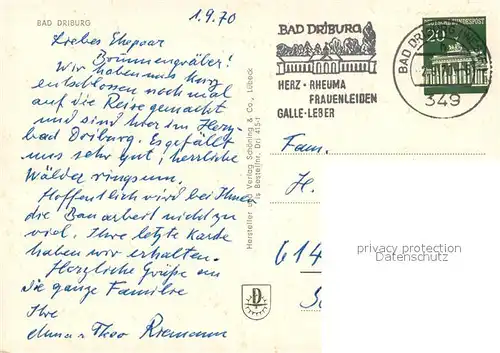 BAD DRIBURG
1.9.70
Liebes Ehepaar
Brünnengräber!
Wir haben uns kurz
entschlossen noch mal
auf die Reise gemacht
und sind hier im Herz-
bad Driburg. Es gefällt
uns sehr gut! herrliche
Wälder ringsum.
Hoffentlich wird bei Ihnen
die Bauarbeit nicht zu
viel. Ihre letzte Karte
haben wir erhalten.
Herzliche Grüße an
die ganze Familie
Ihre
Theo Riemann
Hersteller und Verlag Schöning & Co., Lübeck
Bestellnr. Dri 415
BAD DRIBURG
HERZ · RHEUMA
FRAUENLEIDEN
GALLE-LEBER
BAD DRIBURG
349
20
BUNDESPOST
Fam.
H.
614
privacy protection
Datenschutz